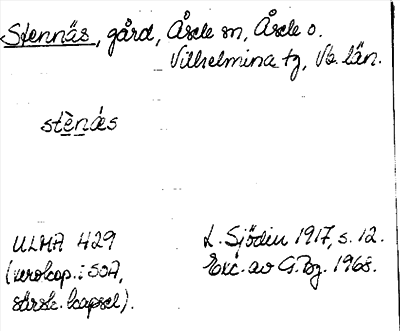 Stennäs, gård, Åsele sn, Åsele o.
Vilhelmina tg, Vb. län.
stènás
ULMA 429
L. Sjödin 1917, s. 12.
(xerokop. i SOA,
Exc. av G. Bg. 1968.
särsk. kapsel).